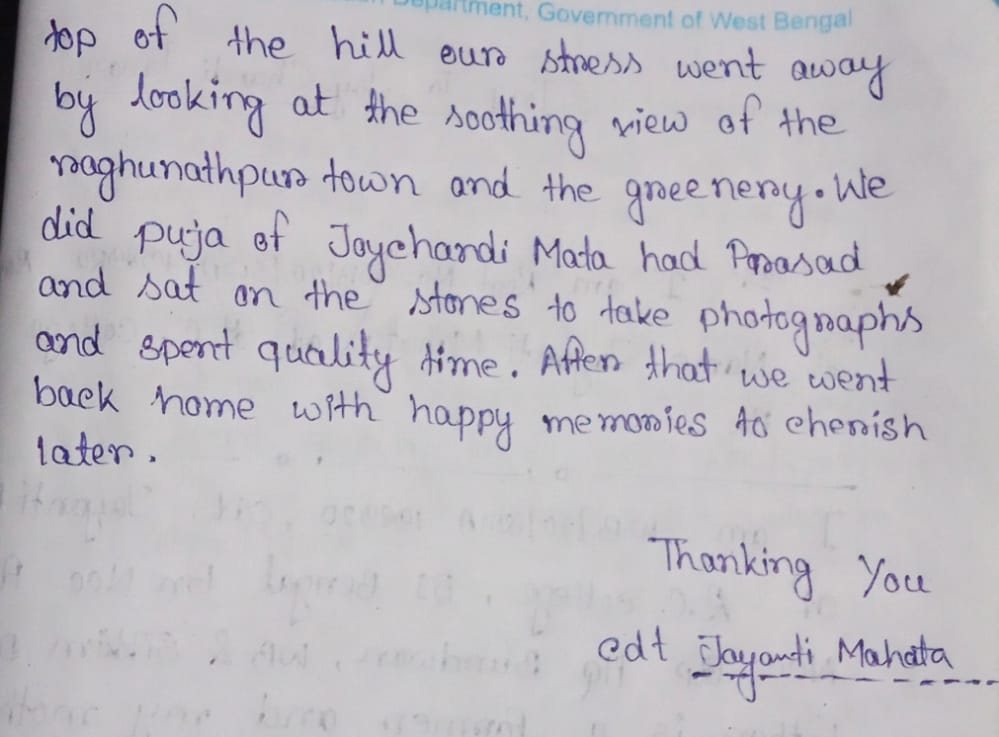 Department, Government of West Bengal
top of the hill our stress went away
by looking at the soothing view of the
raghunathpur town and the greenery. We
did puja of Joychandi Mata had Prasad
and sat on the stones to take photographs
and spent quality time. After that we went
back home with happy memories to cherish
later.
Thanking You
cdt Jayanti Mahata